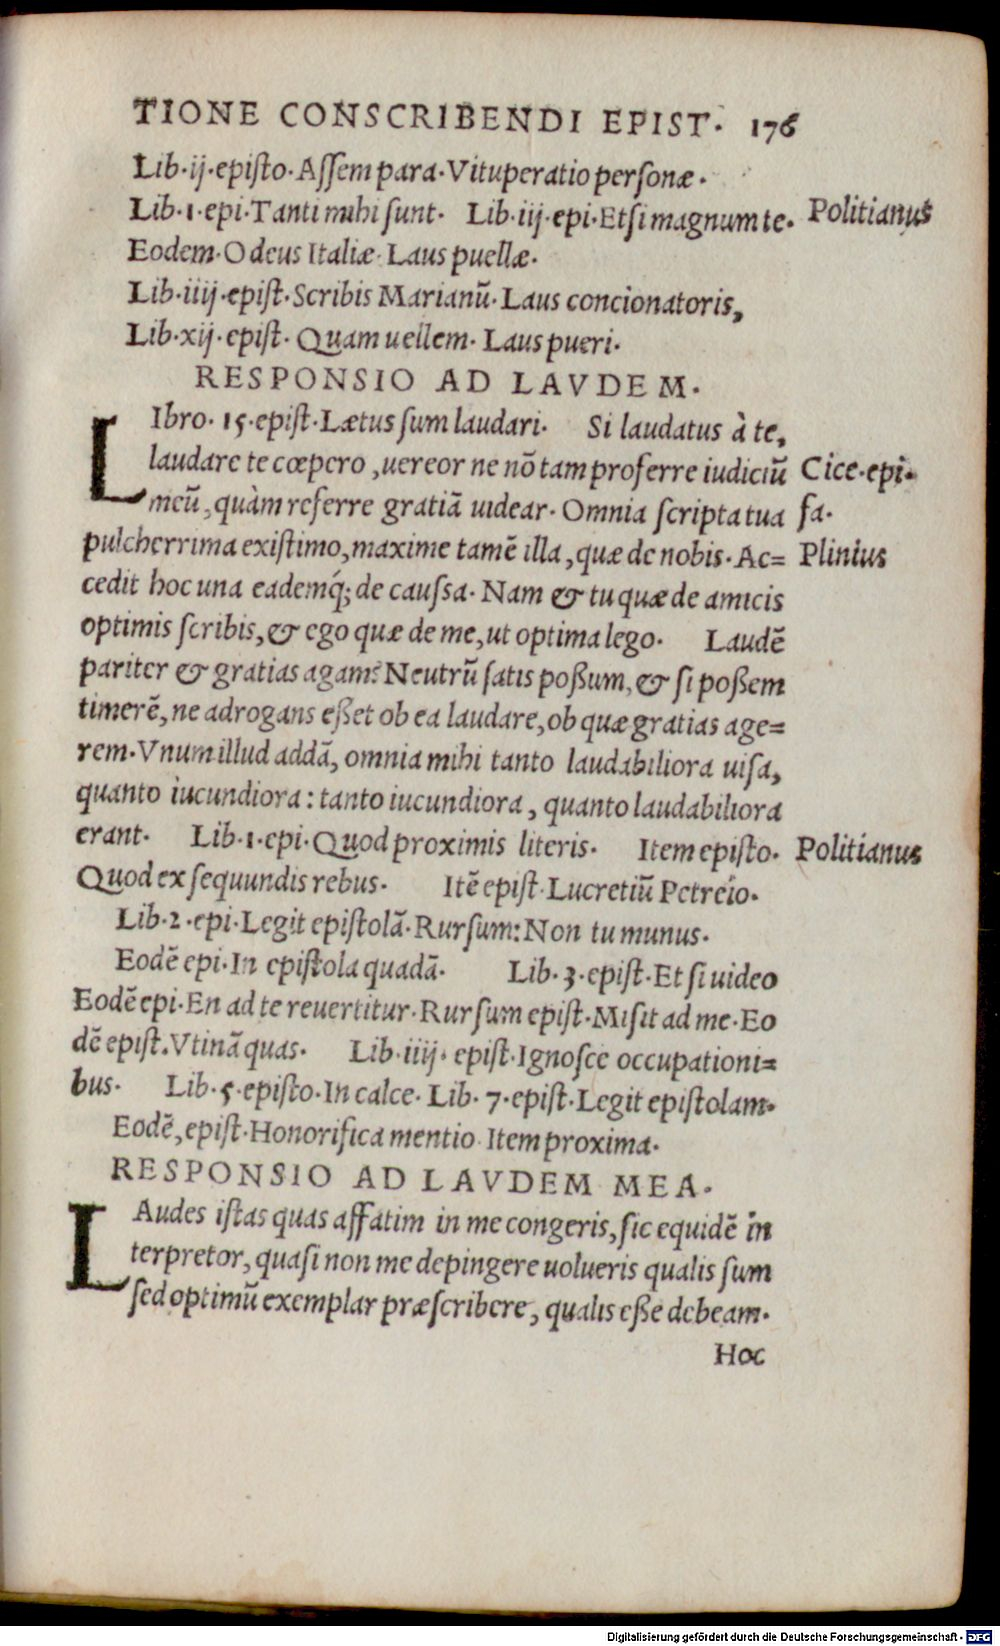 TIONE CONSCRIBENDI EPIST. 176
Lib·ij·episto·Assem para·Vituperatio personæ·
Lib·1·epi·Tanti mihi sunt· Lib·iij·epi·Etsi magnum te· Politianus
Eodem·O deus Italiæ· Laus puellæ·
Lib·iiij·epist·Scribis Marianū·Laus concionatoris,
Lib·xij·epist·Quam uellem·Laus pueri·
RESPONSIO AD LAVDEM.
LIbro·15·epist·Lætus sum laudari· Si laudatus à te,
laudare te cœpero, uereor ne nō tam proferre iudiciū Cice·epi·
meū, quàm referre gratiā uidear·Omnia scripta tua fa·
pulcherrima existimo, maxime tamē illa, quæ de nobis·Ac= Plinius
cedit hoc una eademq́; de caussa·Nam & tu quæ de amicis
optimis scribis, & ego quæ de me, ut optima lego· Laudē
pariter & gratias agam? Neutrū satis poßum, & si poßem
timerē, ne adrogans eßet ob ea laudare, ob quæ gratias age=
rem·Vnum illud addā, omnia mihi tanto laudabiliora uisa,
quanto iucundiora: tanto iucundiora, quanto laudabiliora
erant· Lib·1·epi·Quod proximis literis· Item episto· Politianus
Quod ex sequundis rebus· Itē epist·Lucretiū Petreío·
Lib·2·epi·Legit epistolā·Rursum: Non tu munus·
Eodē epi·In epistola quadā· Lib·3·epist·Et si uideo
Eodē epi·En ad te reuertitur·Rursum epist·Misit ad me·Eo
dē epist.Vtinā quas· Lib·iiij·epist·Ignosce occupationi=
bus· Lib·5·episto·In calce·Lib·7·epist·Legit epistolam·
Eodē, epist·Honorifica mentio·Item proxima·
RESPONSIO AD LAVDEM MEA.
LAudes istas quas affatim in me congeris, sic equidē in
terpretor, quasi non me depingere uolueris qualis sum
sed optimū exemplar præscribere, qualis eße debeam·
Hoc
Digitalisierung gefördert durch die Deutsche Forschungsgemeinschaft - DFG